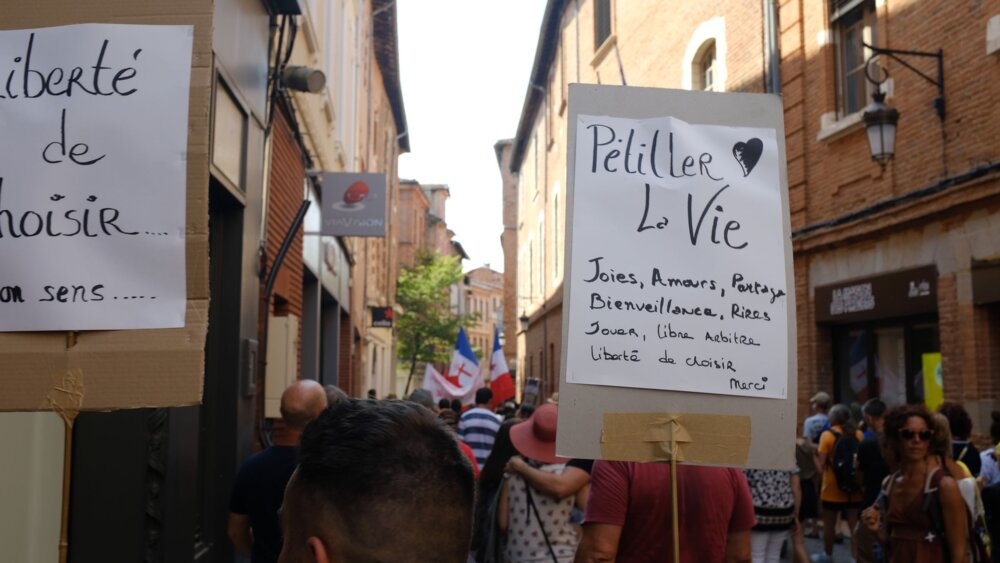 Liberté
de
choisir....
bon sens.....
Pétiller
La Vie
Joies, Amours, Partage
Bienveillance, Rires
Jouer, libre Arbitre
liberté de choisir
Merci